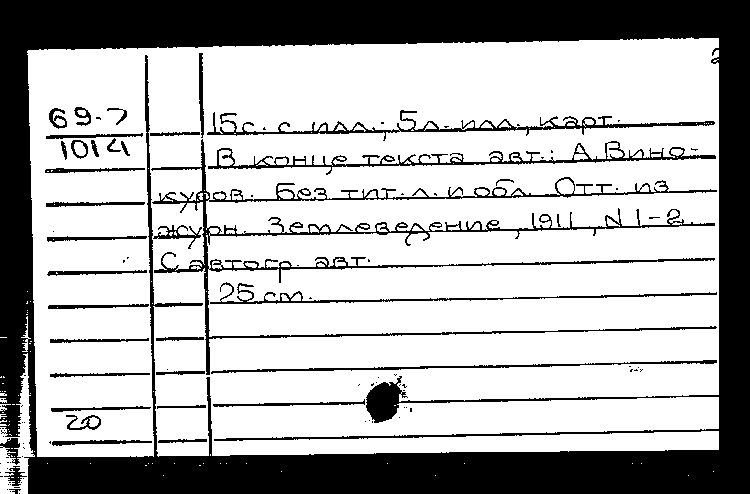 2
69-7 15с. с илл.; 5л. илл., карт.
1014 В конце текста авт.: А.Вино-
куров. Без тит. л. и обл. Отт. из
журн. Землеведение, 1911, N 1-2.
С автогр. авт.
25 см.
20